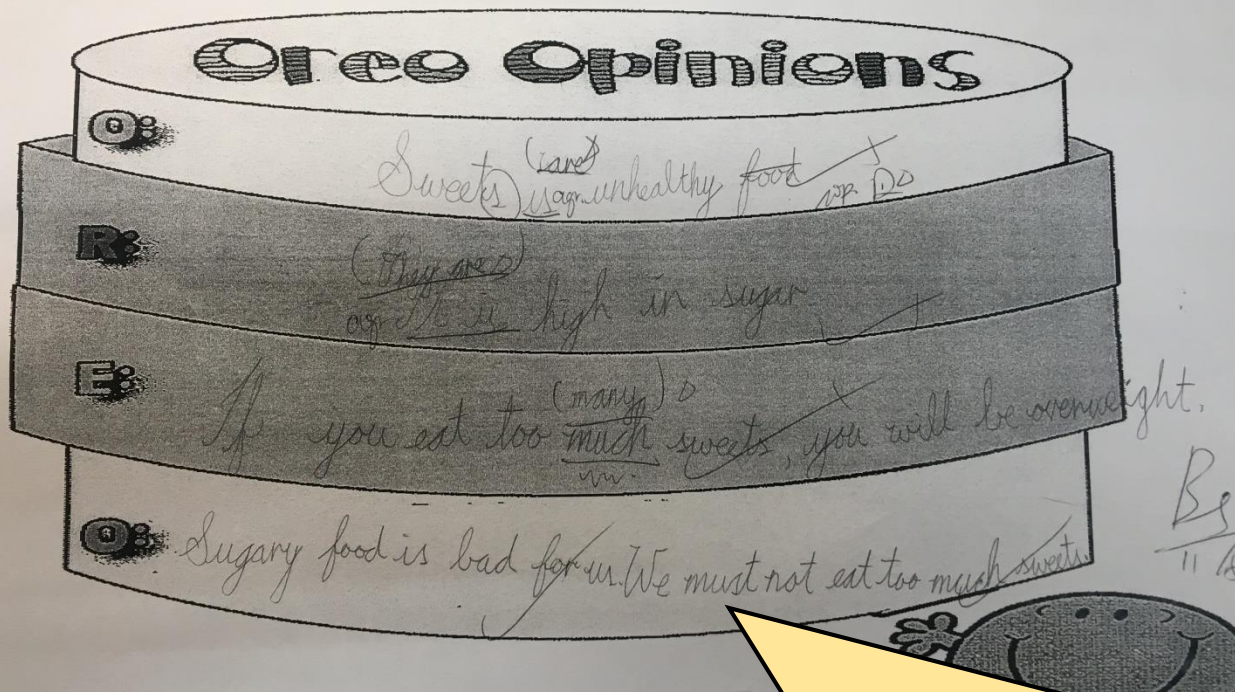 Oreo Opinions
(are)
O: Sweets is agr. unhealthy food
wp
(They are)
R: agr It is high in sugar
(many)
E: If you eat too much sweets, you will be overweight.
ww.
O: Sugary food is bad for us. We must not eat too much sweets.